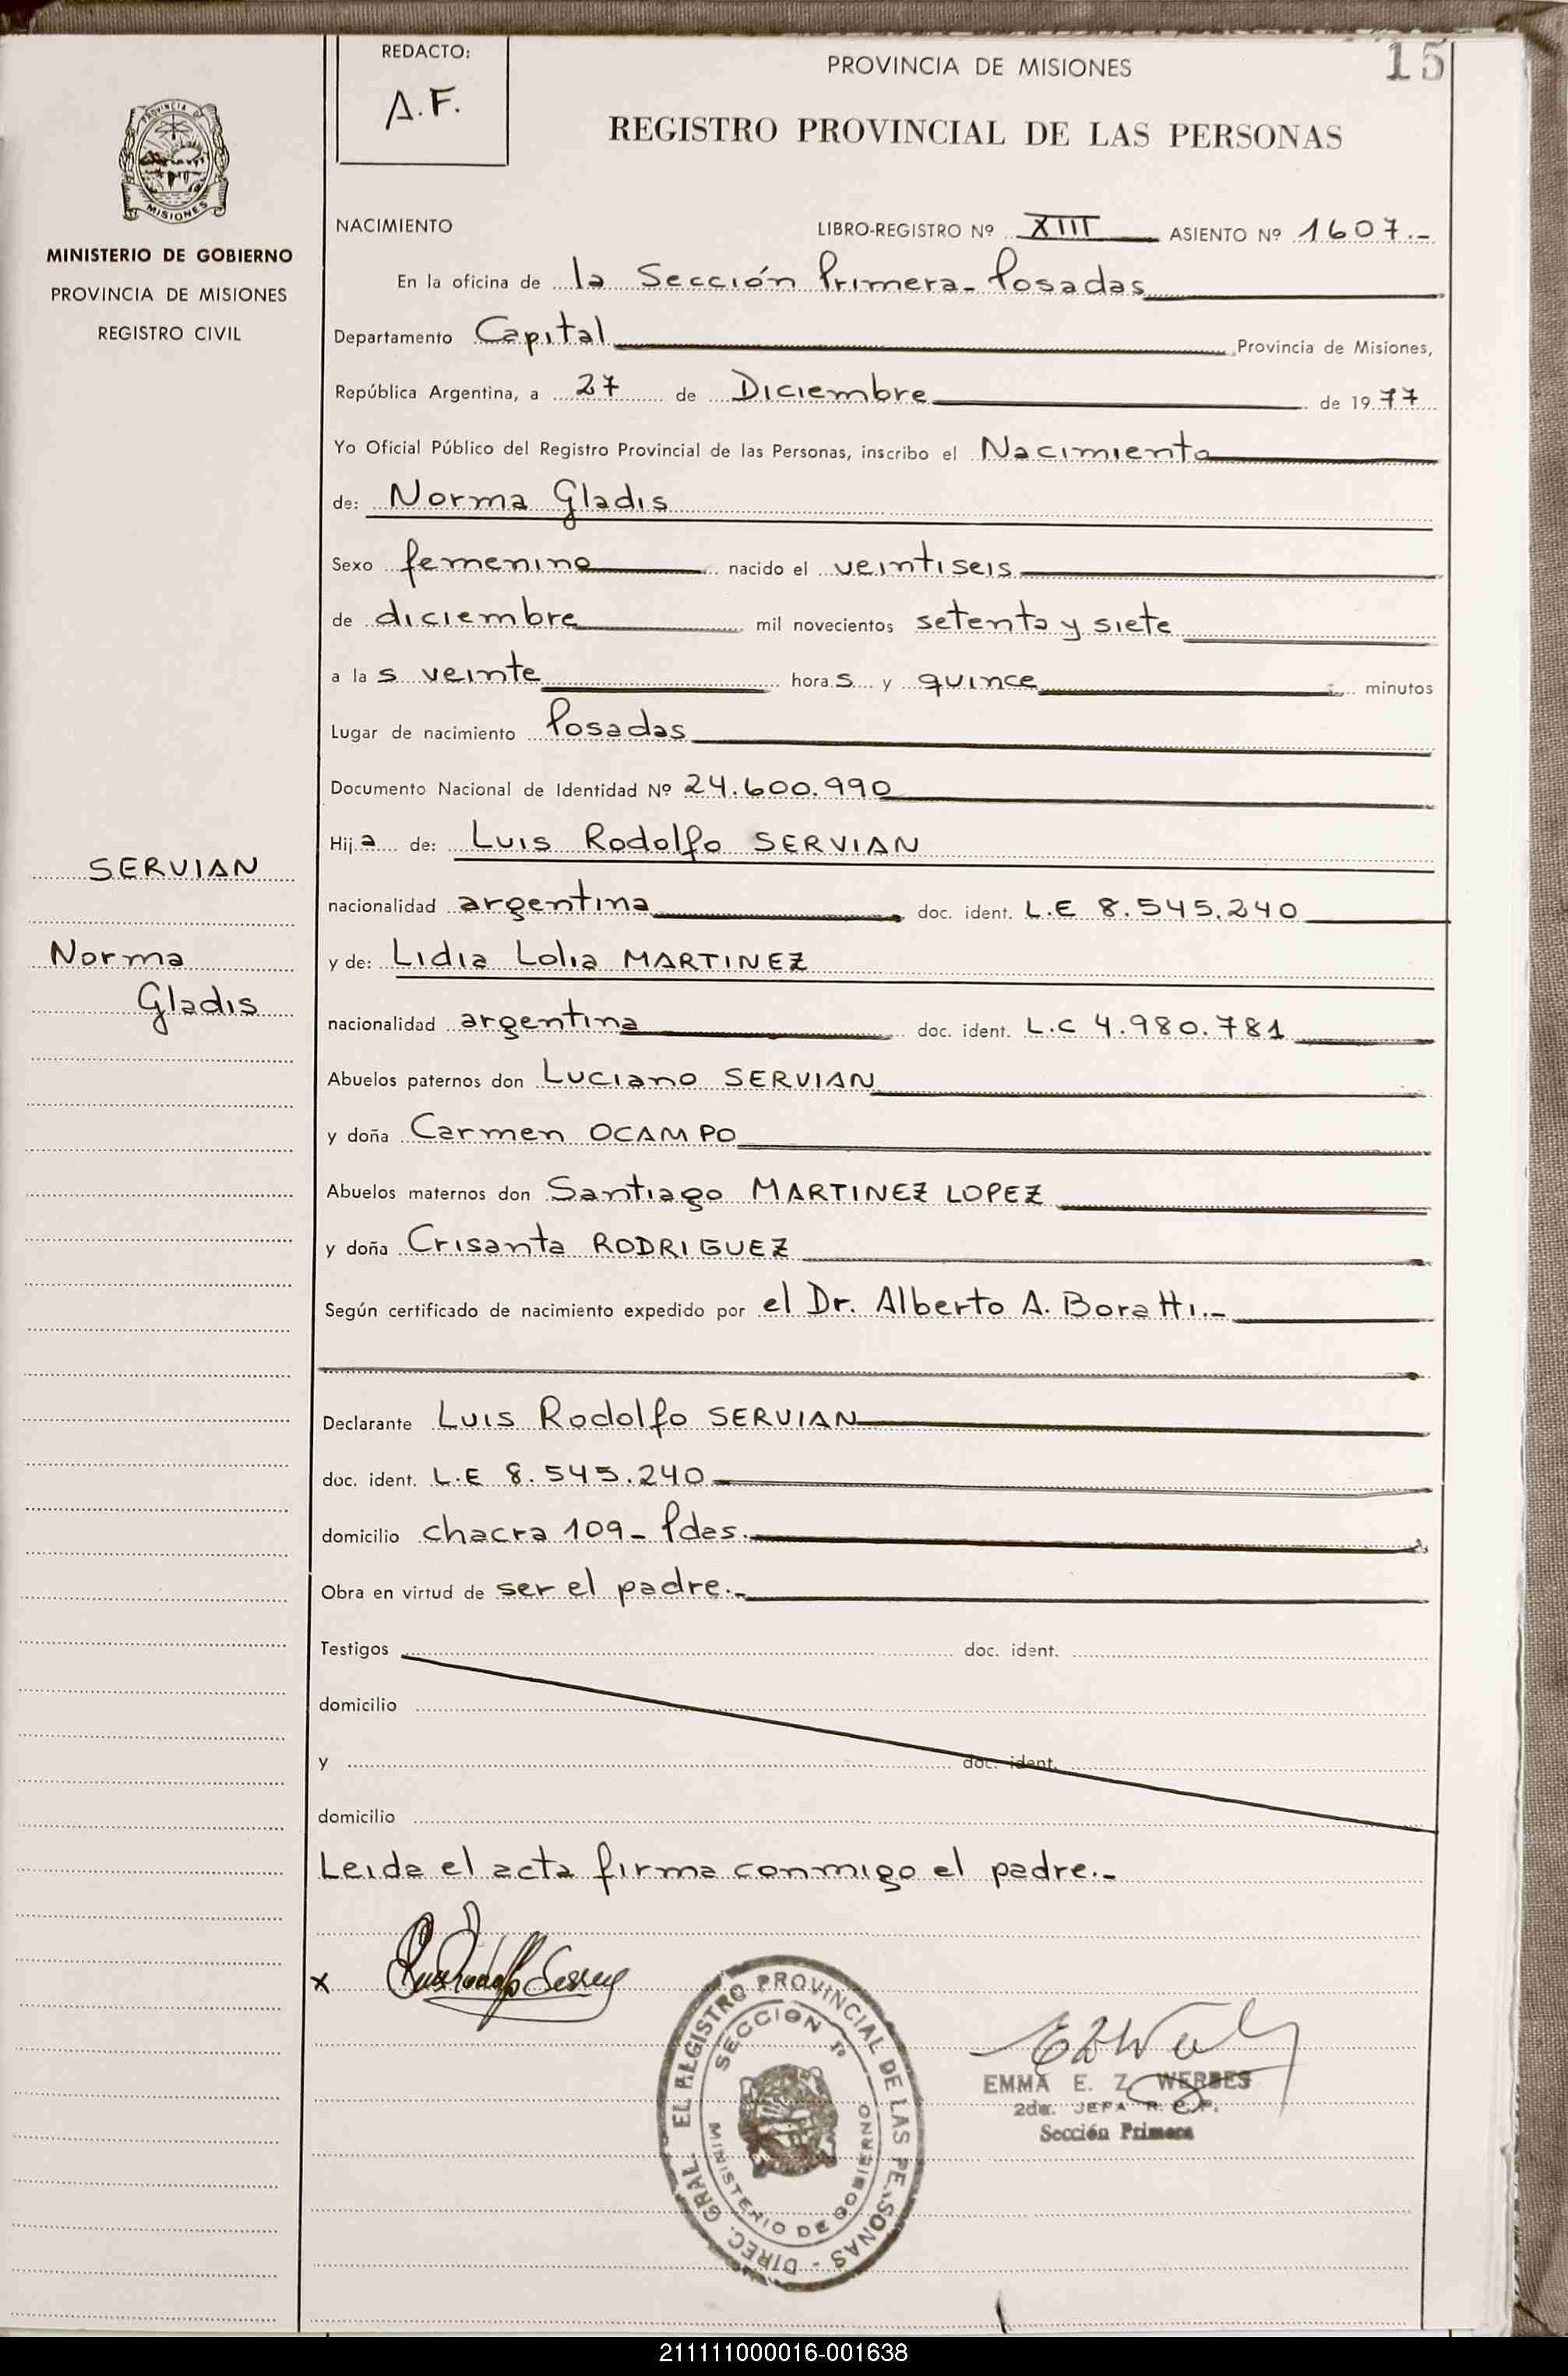 REDACTO:
A.F.
PROVINCIA DE MISIONES
15
REGISTRO PROVINCIAL DE LAS PERSONAS
PROVINCIA DE
MISIONES
MINISTERIO DE GOBIERNO
PROVINCIA DE MISIONES
REGISTRO CIVIL
NACIMIENTO LIBRO-REGISTRO Nº XIII ASIENTO Nº 1607.-
En la oficina de la Sección Primera- Posadas
Departamento Capital Provincia de Misiones,
República Argentina, a 27 de Diciembre de 1977
Yo Oficial Público del Registro Provincial de las Personas, inscribo el Nacimiento
de: Norma Gladis
Sexo femenino nacido el veintiseis
de diciembre mil novecientos setenta y siete
a las veinte horas y quince minutos
Lugar de nacimiento Posadas
Documento Nacional de Identidad Nº 24.600.990
Hija de: Luis Rodolfo SERVIAN
SERVIAN
nacionalidad argentina doc. ident. L.E 8.545.240
Norma
y de: Lidia Lolia MARTINEZ
Gladis
nacionalidad argentina doc. ident. L.C 4.980.781
Abuelos paternos don Luciano SERVIAN
y doña Carmen OCAMPO
Abuelos maternos don Santiago MARTINEZ LOPEZ
y doña Crisanta RODRIGUEZ
Según certificado de nacimiento expedido por el Dr. Alberto A. Boratti.-
Declarante Luis Rodolfo SERVIAN
doc. ident. L.E 8.545.240
domicilio chacra 109- Pdas.
Obra en virtud de ser el padre.-
Testigos doc. ident.
domicilio
y doc. ident.
domicilio
Leida el acta firma conmigo el padre.-
x
DIREC. GRAL. EL REGISTRO PROVINCIAL DE LAS PERSONAS -
SECCION 1º
MINISTERIO DE GOBIERNO
EMMA E. Z. WERBES
2da. JEFA R. C. P.
Sección Primera
211111000016-001638